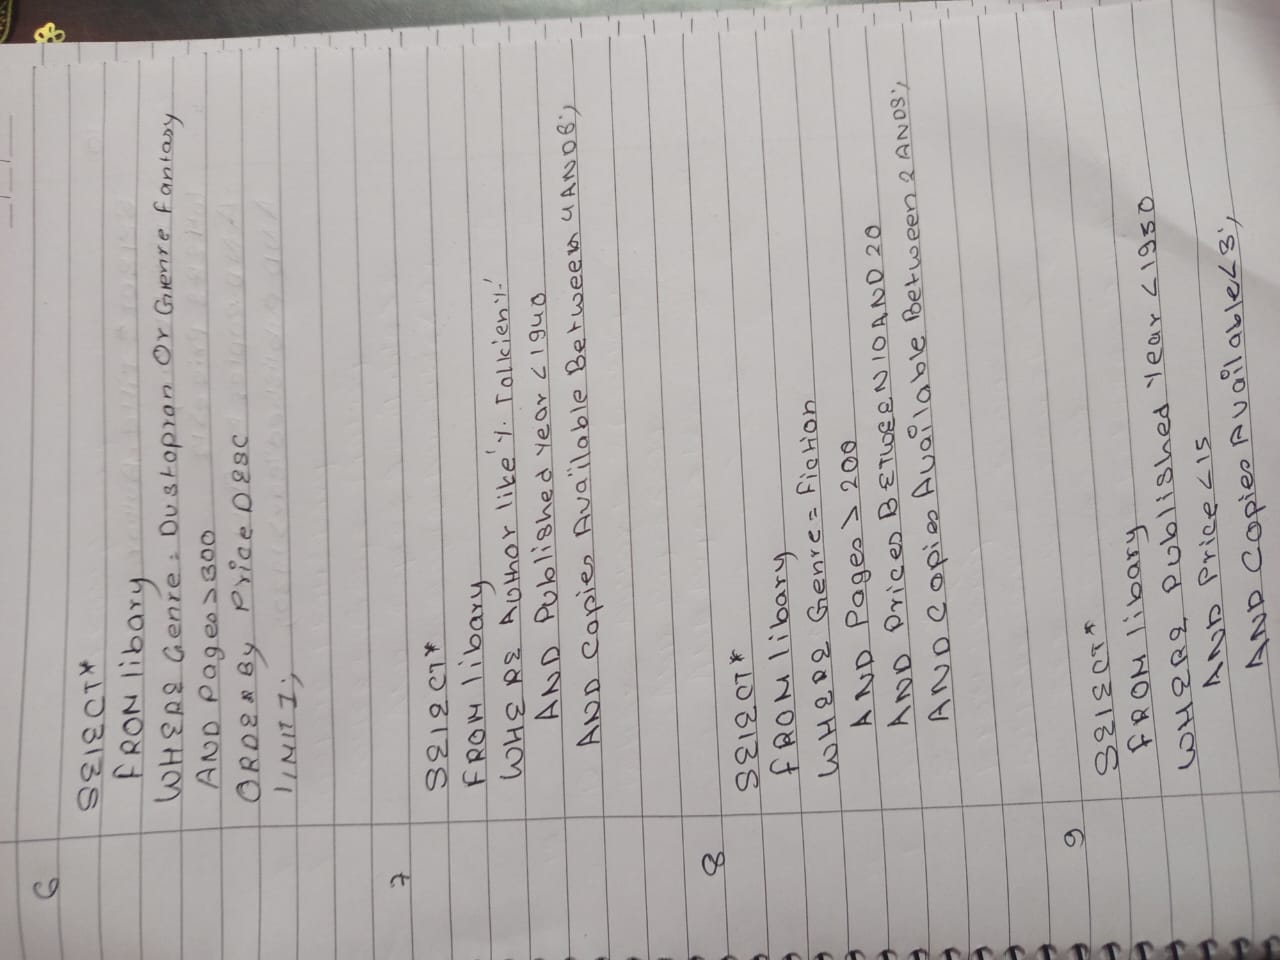 6
SEIECT*
FROM libary
WHERE Genre = Dustopian Or Genre Fantasy
AND Pages > 300
ORDER By Price DESC
IIMIT 1;
7
SEIECT*
FROM libary
WHERE Author like '%. Talkien%'
AND Published year < 1940
AND Copies Available Between 4 AND 8;
8
SEIECT*
FROM libary
WHERE Genre = Fiction
AND Pages > 200
AND Prices BETWEEN 10 AND 20
AND Copies Available Between 2 AND 8;
9
SEIECT*
FROM libary
WHERE Published year < 1950
AND Price < 15
AND Copies Available < 3;